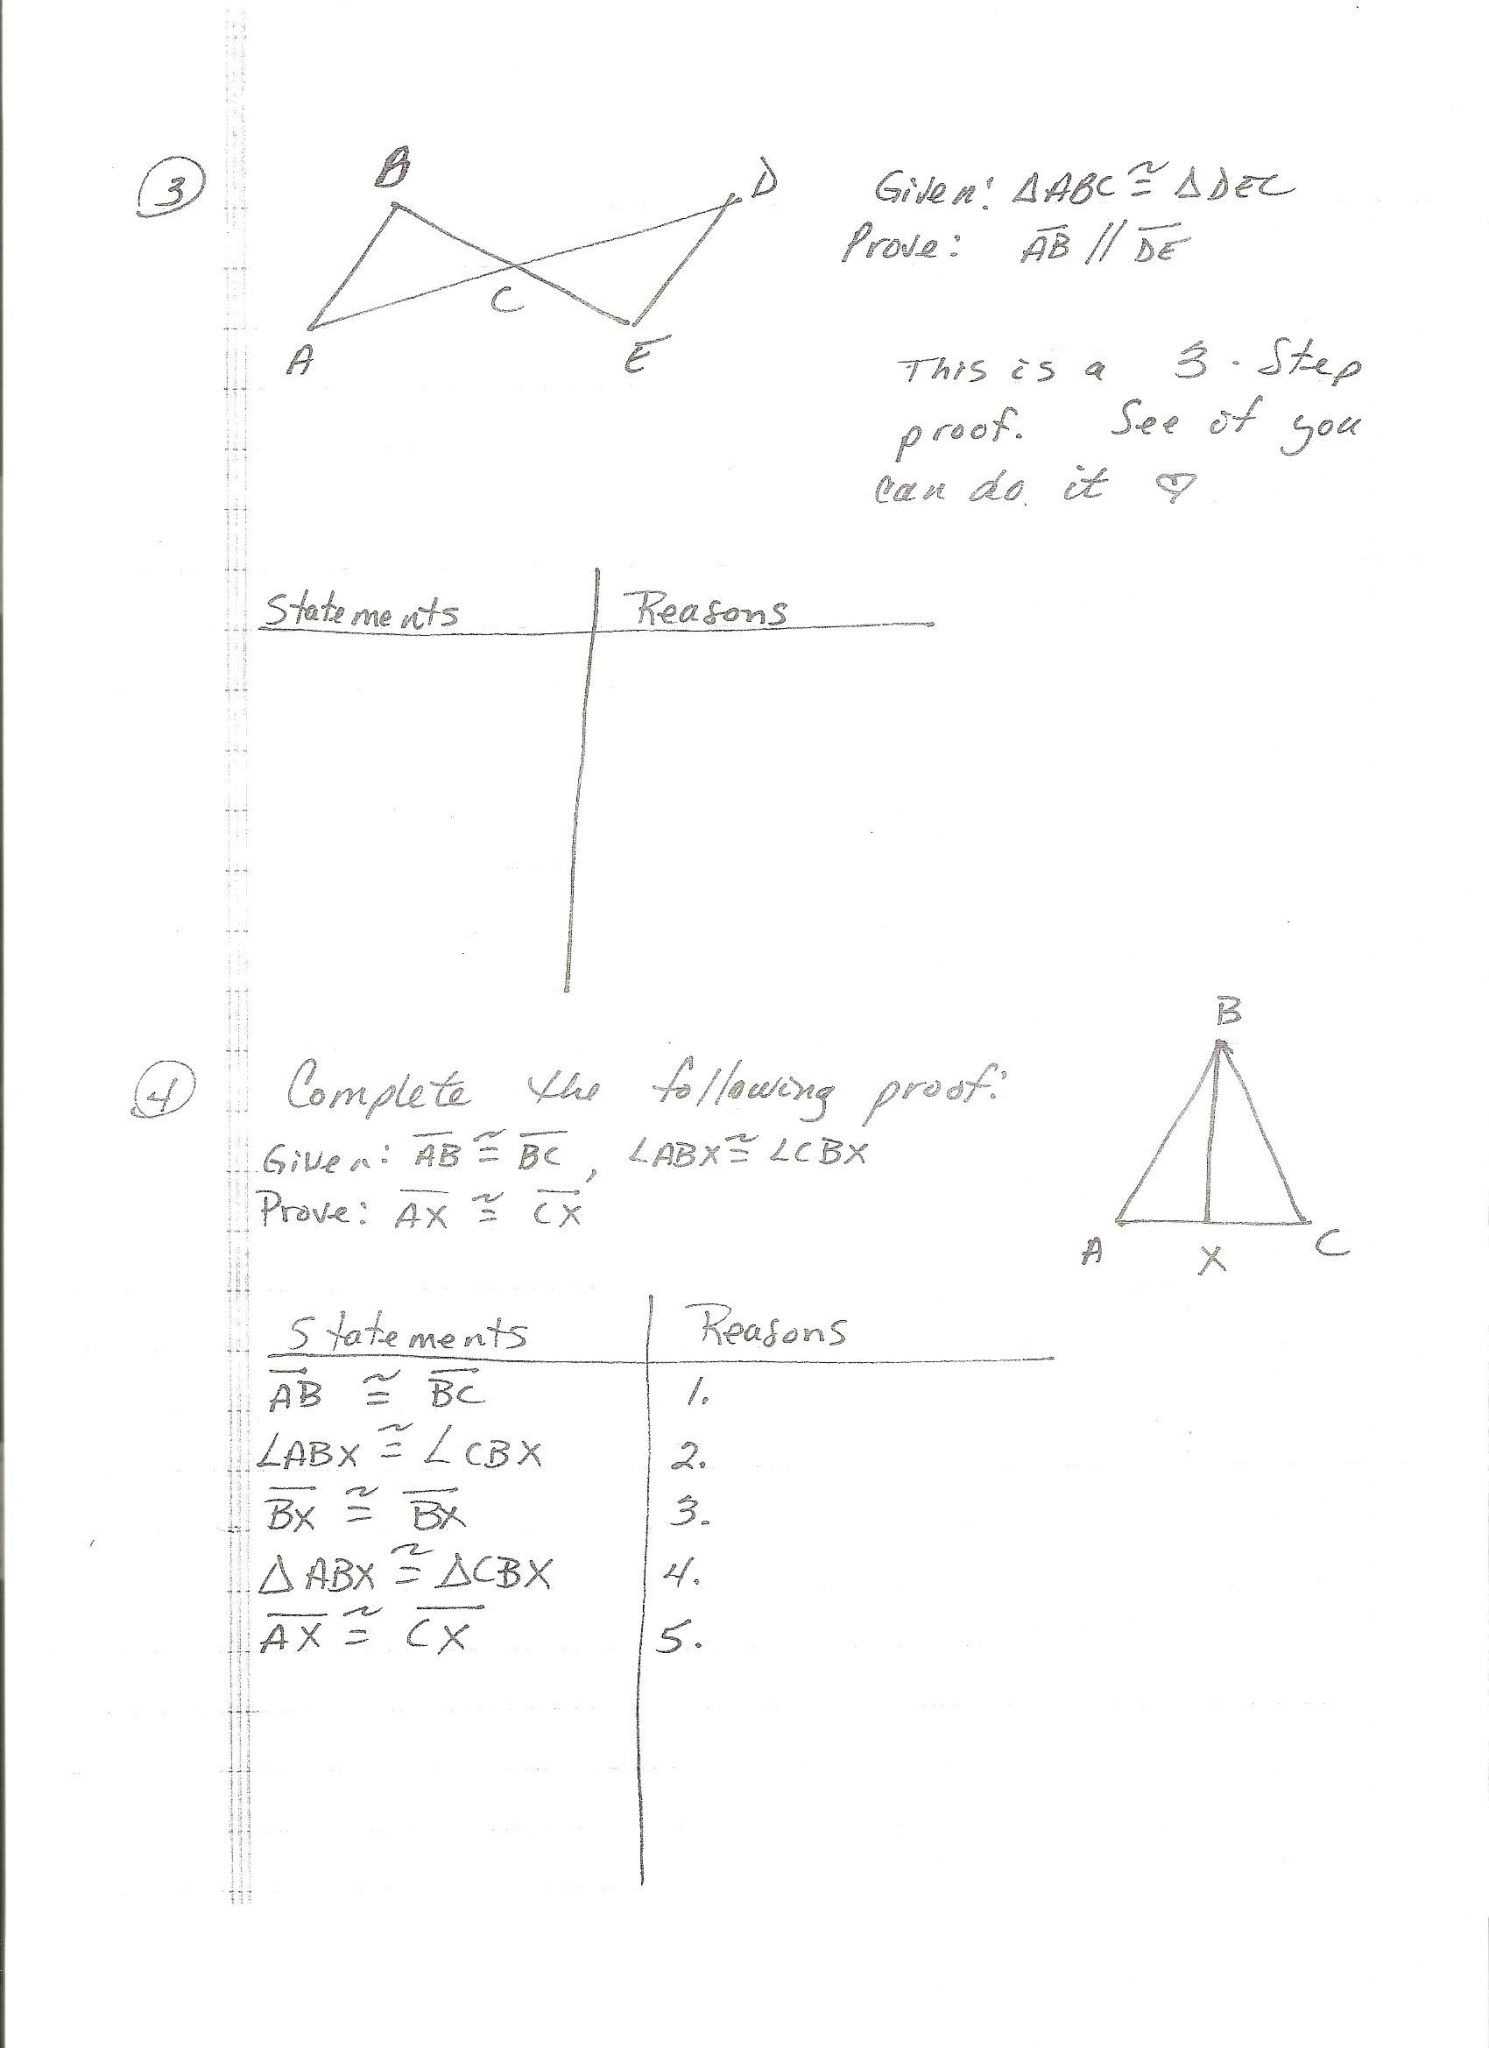 3
B
D
Given: △ABC ≅ △DEC
Prove: AB // DE
C
A
E
This is a 3-Step
proof. See if you
can do it ♡
Statements
Reasons
B
4
Complete the following proof:
Given: AB ≅ BC, ∠ABX ≅ ∠CBX
Prove: AX ≅ CX
A
X
C
Statements
Reasons
AB ≅ BC
1.
∠ABX ≅ ∠CBX
2.
BX ≅ BX
3.
△ABX ≅ △CBX
4.
AX ≅ CX
5.